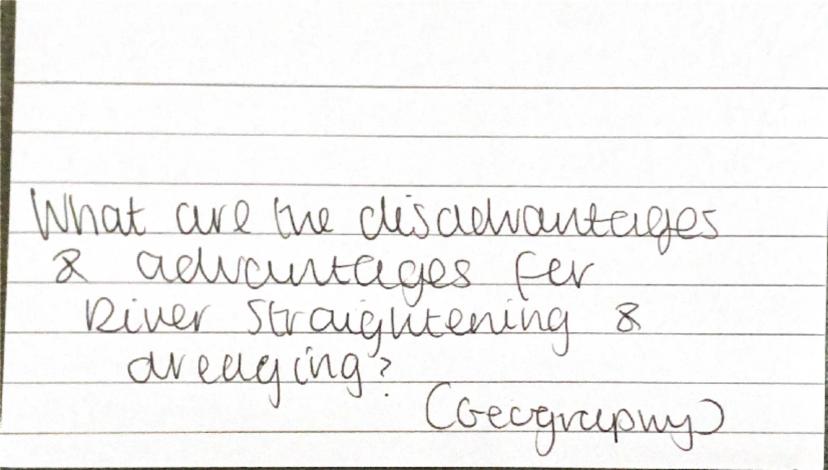 What are the disadvantages
& advantages for
River Straightening &
dredging?
(Geography)